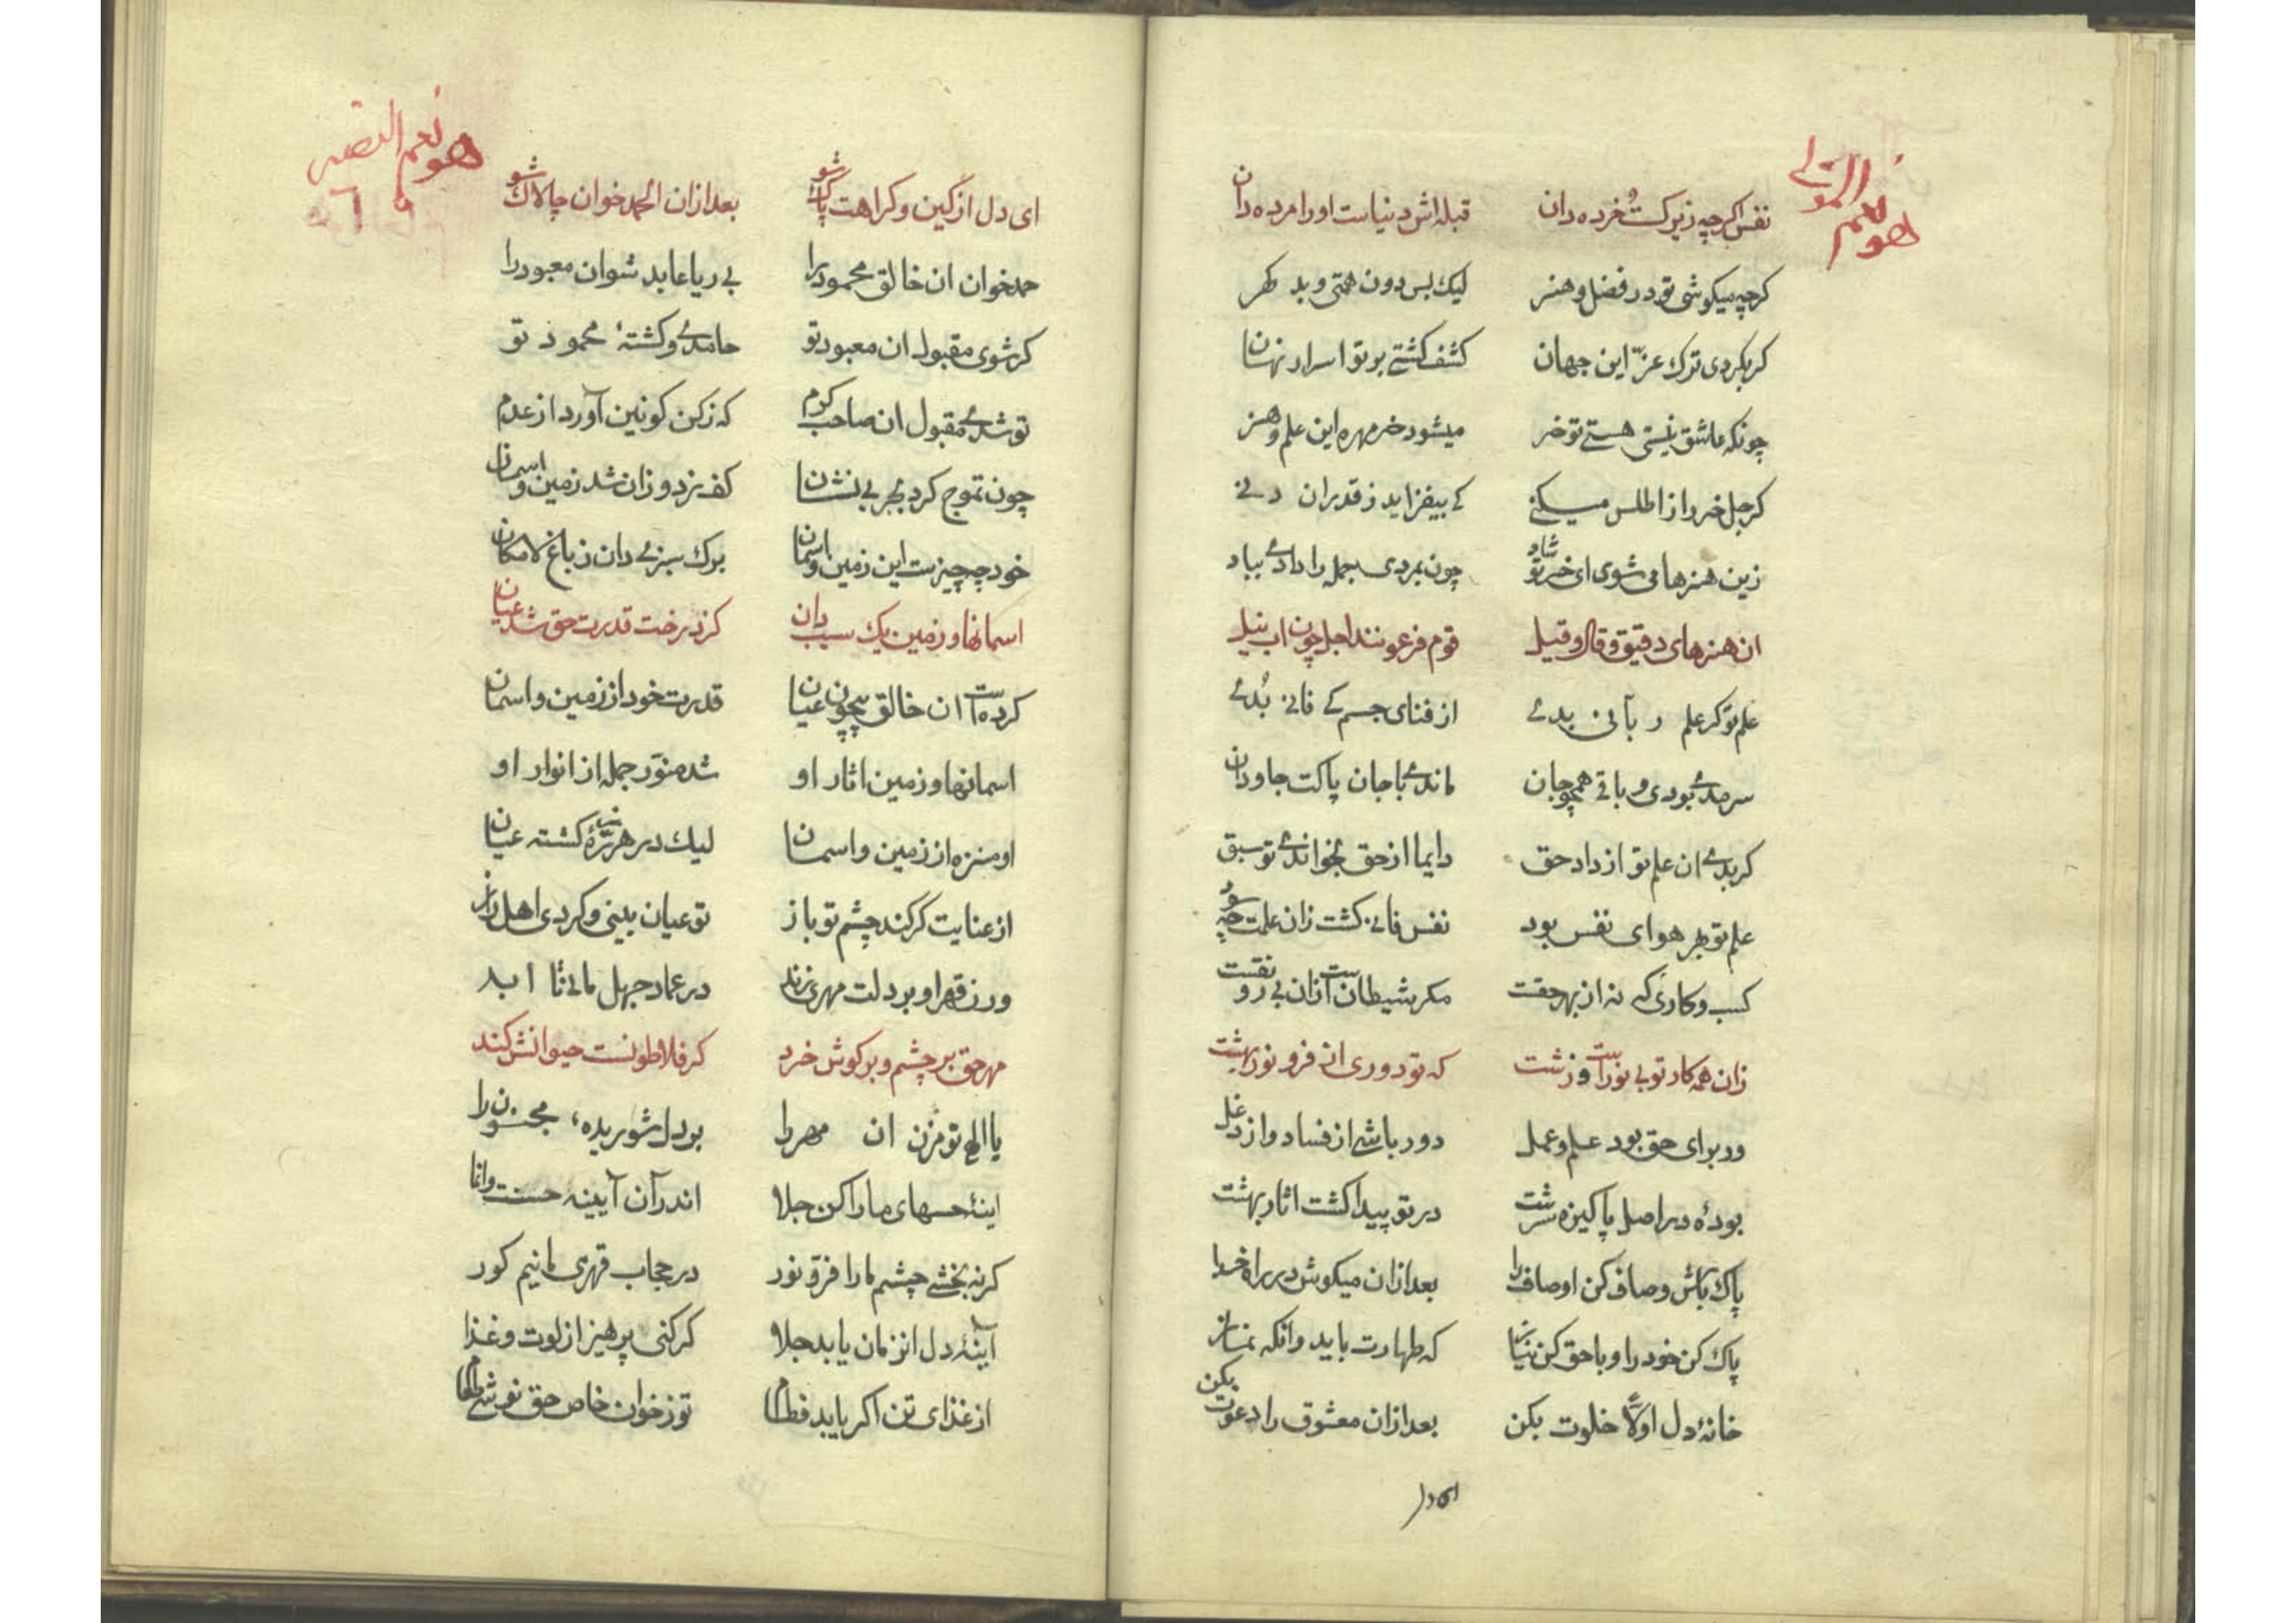 هو نعم المولی
نفس اکرچه زیرکست خرده دان قبله اش دنیاست او را مرده دان
کرچه میکوشی تو در فضل و هنر لیک بس دون همتی و بد کهر
کر بکردی ترک عز این جهان کشف کشتی بر تو اسرار نهان
چونکه عاشق نیستی هستی تو خر میشود خر مهره این علم و هنر
کر جل خر را ز اطلس میکنی کی بیفزاید ز قدر ان دنی
زین هنرها می شوی ای خر تو شاد چون بمردی جمله را دادی بباد
ان هنرهای دقیق و قال و قیل قوم فرعونند اجل چون اب نیل
علم تو کر علم ربانی بدی از فنای جسم کی فانی بدی
سرمدی بودی و باقی همچو جان ماندی با جان پاکت جاودان
کر بدی ان علم تو از داد حق دایما از حق بخواندی تو سبق
علم تو بهر هوای نفس بود نفس فانی کشت زان علمت چه سود
کسب و کاری که نه از بهر حقست مکر شیطان است ازان بی رونقست
زان همه کار تو بی نور است و زشت که تو دوری از فر و نور بهشت
ور برای حق بود علم و عمل دور باشی از فساد و از دغل
بودهٔ در اصل پاکیزه سرشت در تو پیدا کشت اثار بهشت
پاک باش و صاف کن اوصاف را بعد ازان میکوش در راه خدا
پاک کن خود را و با حق کن نیاز که طهارت باید و انکه نماز
خانهٔ دل اولا خلوت بکن بعد ازان معشوق را دعوت بکن
ای دل
هو نعم النصیر
٦
ای دل از کین و کراهت پاک شو بعد ازان الحمد خوان چالاک شو
حمد خوان ان خالق محمود را بی ریا عابد شو ان معبود را
کر شوی مقبول ان معبود تو حامدی و کشتهٔ محمود تو
تو شدی مقبول ان صاحب کرم که ز کن کونین آورد از عدم
چون تموج کرد بحر بی نشان کف بزد و زان شد زمین و اسمان
خود چه چیزست این زمین و اسمان برک سبزی دان ز باغ لامکان
اسمانها و زمین یک سیب دان کز درخت قدرت حق شد عیان
کرده است ان خالق بیچون عیان قدرت خود از زمین و اسمان
اسمانها و زمین اثار او شد منور جمله از انوار او
او منزه از زمین و اسمان لیک در هر ذرهٔ کشته عیان
از عنایت کر کند چشم تو باز تو عیان بینی و کردی اهل راز
ور ز قهر او بر دلت مهری زند در عماد جهل مانی تا ابد
مهر حق بر چشم و بر کوش خرد کر فلاطونست حیوانش کند
یا الهی تو مزن ان مهر را بر دل شوریدهٔ مجنون را
اینهٔ حسهای ما را کن جلا اندر آن آیینه حسنت وانما
کر نبخشی چشم ما را فر و نور در حجاب قهری مانیم کور
آینهٔ دل انزمان یابد جلا کر کنی پرهیز از لوت و غذا
از غذای تن اکر یابد فطام تو ز خوان خاص حق نوشی طعام